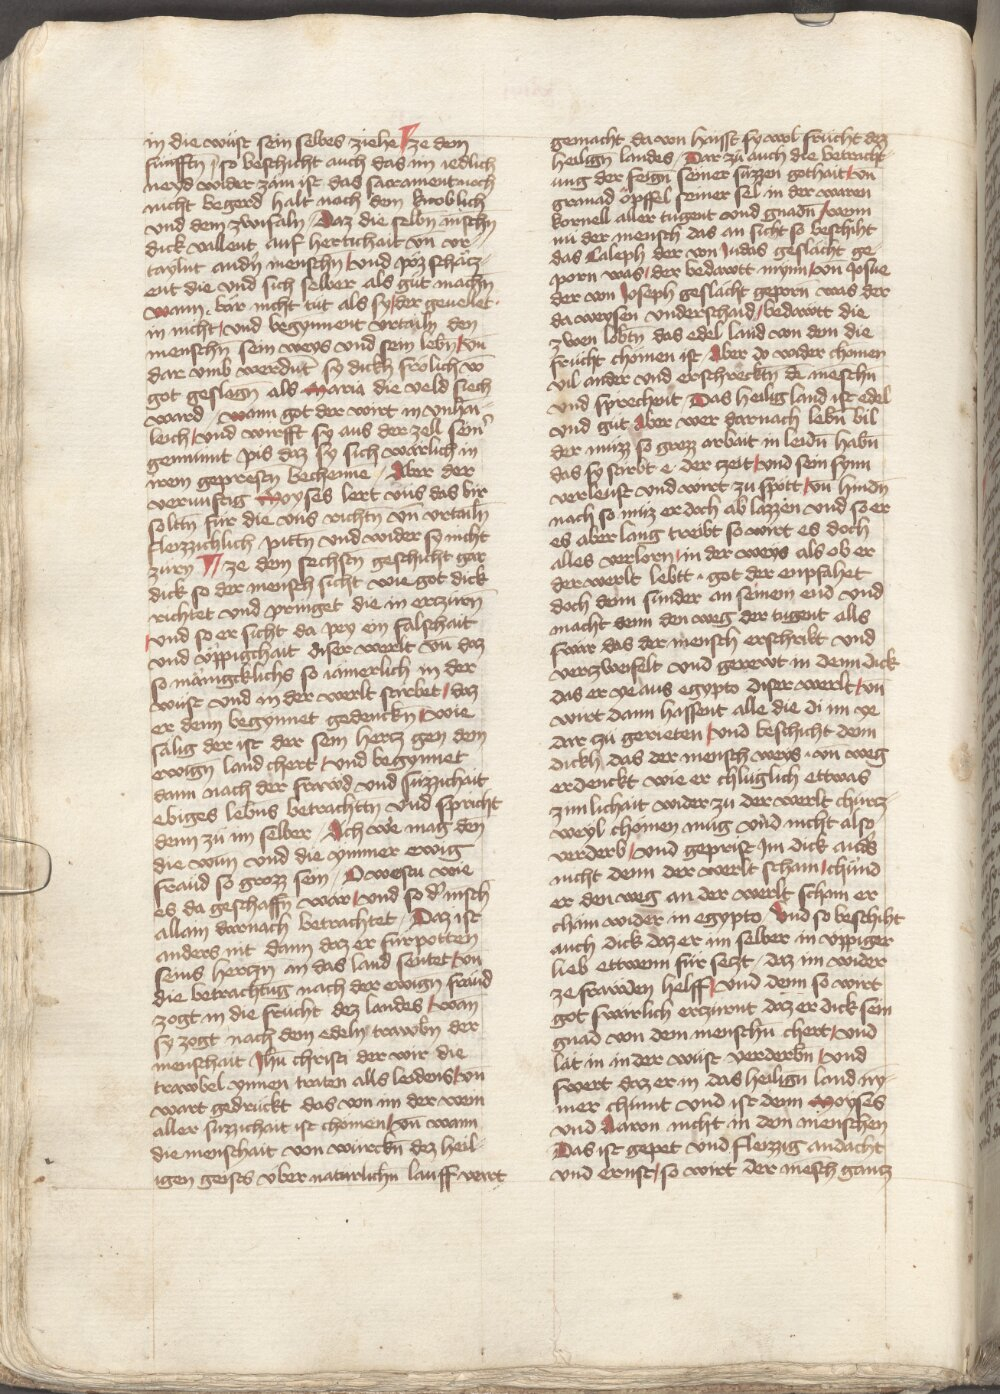 in die wüst sein selbes ziehe V ze dem
fünfften so beschicht auch das im iedlich
neyd wider zäm ist das sacrament noch
nicht begerd halt nach dem knoblich
vnd dem zwifaln / Daz die selbn mēschn
dick vallent auf hertichait vn̄ vr-
taylnt andn̄ menschn / vnd pöz schäcz-
ent die vnd sich selber als güt machn̄
wann . bär nicht tüt als sy / der geuellet .
in nicht / vnd begynnent vrtailn den
menschn̄ sein weys vnd sein lebn̄ / vn̄
dar vmb werdnt sy dickh frölich vō
got geslagn̄ als Maria die veld siech
ward / wann got der wirt in vnhai-
leich / vnd wirfft sy aus der zell seinˢ
gemaint pis daz sy sich wärlich in
irem geprestn̄ bechenne / Aber der
vernunftig Moyses lert vns das bir
soltn̄ für die vns richtn̄ vn̄ vrtailn̄
fleizzichlich pittn̄ vnd wider sy nicht
zürn VI ze dem sechsten geschicht gar
dick so der mensch sicht wie got dick
richtet vnd pringet die in erczürn̄
vnd so er sicht da pey ein falschait
vnd vppigchait diser werlt vn̄ daz
so mänigcklichs so iämerlich in der
wüst vnd in der werlt stirbet / daz
er denn begynnet gedenckn̄ / wie
sälig der ist der sein hertz gen dem
ewign̄ land chert / vnd begynnet
dann nach der fräwd vnd süzzichait
ebiges lebns betrachttn̄ vnd spricht
denn zü im selber / Ach we mag den
die wun vnd die ymmer ewig
fräud so grozz sein / O west ich wie
es da geschaffn̄ wär / vnd so dˢ mēsch
allain darnach betrachtet / Daz ist
anders nit dann daz er fürpotten
seins hertzn̄ in das land sentet / vn̄
die betrachtūg nach der ewign̄ fräud
zogt in die frücht dez landes / wan
sy zogt nach dem edeln trawbn̄ der
menschait Jhū christi der wir die
trawbel ynnen traten alls leidens / vn̄
wart gedrückt das von im der wein
aller süzzichait ist chömen / vn̄ wann
die menschait von würckn̄ dez heil-
igen geists vber natürlichn̄ lauff wart
gemacht da von haisst sy wol frücht dez
heilign̄ landes / Dar zü auch die betracht-
ung der feign̄ seiner süzzen gothait / vn̄
granad öpffel seiner sel in der waren
kornell aller tugent vnd gnadn̄ / wenn
nu der mensch das an sicht so beschiht
das Caleph der von Judas geslächt ge-
porn was / der bedawtt mynn / von Josue
der von Joseph geslächt geporn was der
da weysen vnderschaid / bedawtt die
zwen lobtn̄ das edel land von dem die
frücht chömen ist / Aber do wider chomen
vil ander vnd erschrecktn̄ dē meschn̄
vnd sprechent / Das heilig land ist edel
vnd güt Aber wer darnach lebn̄ bil
der müzz so grozz arbait in leidn̄ habn̄
das sy stirbt e . der czeit / vnd sein synn
verleust vnd wirt zu spott / vn̄ hindn̄
nach so müz er doch ab lazzen vnd so er
es aber lang treibt so wirt es doch
alles verlorn / in der weys als ob er
der werlt lebtt . got der enpfahet
doch denn sünder an seinem end vnd
macht denn den weg der tugent alls
swär das der mensch erschrikt vnd
verczweifelt vnd gerewt in denn dick
das er ye aus egypto diser werlt / vn̄
wirt dann hassent alle die di im ye
dar czü gerieten / vnd beschicht denn
dickh das der mensch weys . vn weg
erdenckt wie er chlüglich ettwas
zimlichait wider zu der werlt chürcz-
weyl chömen müg vnd nicht also
verderb / vnd geprist im dick anders
nicht denn der werlt scham / chünd
er den weg an der werlt scham er
chäm wider in egypto / vnd so beschiht
auch dick daz er im selber in vppiger
lieb ettwenn für seczt / daz im wider
ze frawden helff / vnd denn so wirt
got swärlich erczürnt daz er dick sein
gnad von dem menschn̄ chert / vnd
lät in in der wüst verderbn̄ / vnd
swert daz er in das heilign̄ land ny-
mer chümt vnd ist denn Moyses
vnd Aaron nicht in dem menschen
Das ist gepet vnd fleizzig andacht
vnd ernst / so wirt der mēsch gancz